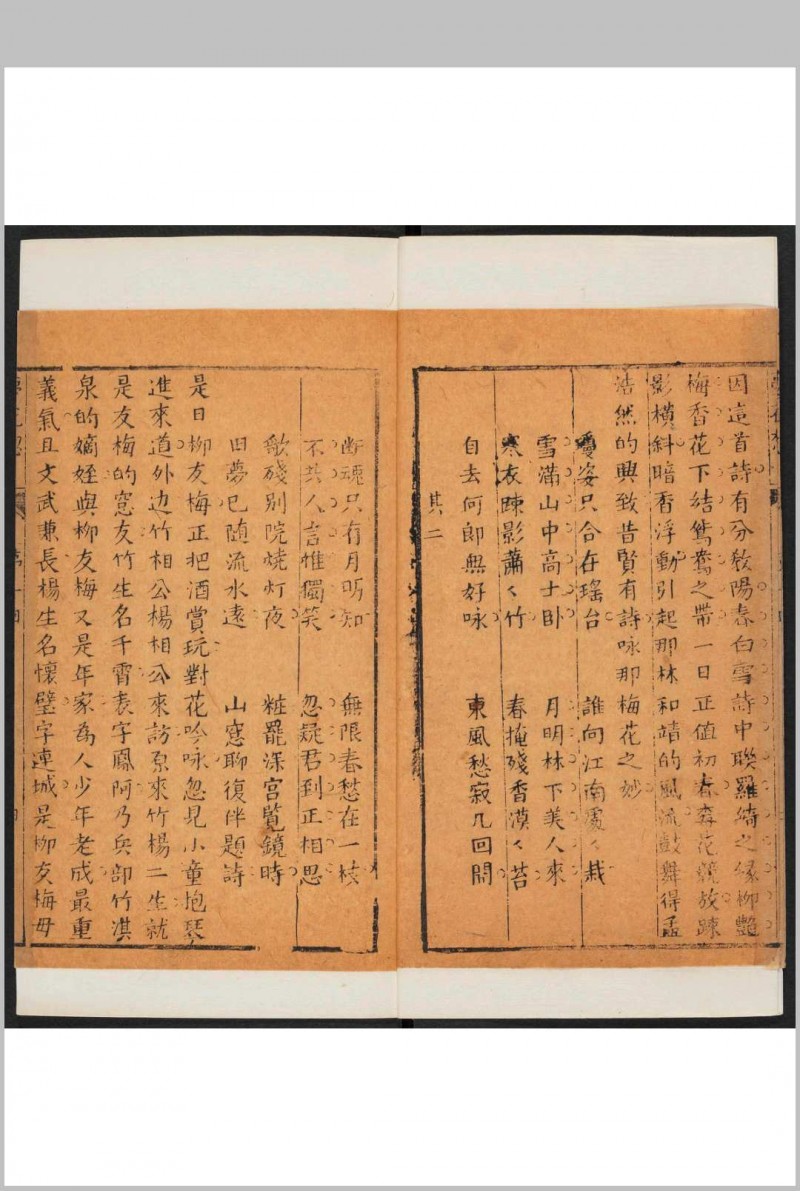 因這首詩有分敎陽春白雪詩中聯羅綺之緣柳艷
梅香花下結鴛鴦之帶一日正值初春弄花競放踈
影橫斜暗香浮動引起那林和靖的風流鼓舞得孟
浩然的興致昔賢有詩咏那梅花之妙
瓊姿只合在瑤台　誰向江南處〻栽
雪滿山中高士卧　月明林下美人來
寒衣踈影蕭〻竹　春掩殘香漠〻苔
自去何郎無好咏　東風愁寂几回開
其二
断魂只有月明知　無限春愁在一枝
不共人言惟獨笑　忽疑君到正相思
歌殘別院燒灯夜　粧罷深宮覽鏡時
旧夢已随流水遠　山窓聊復伴題詩
是日柳友梅正把酒賞玩對花吟咏忽見小童抱琴
進來道外边竹相公楊相公來訪原來竹楊二生就
是友梅的窓友竹生名干霄表字鳳阿乃兵部竹淇
泉的嫡姪與柳友梅又是年家為人少年老成最重
義氣且文武兼長楊生名懷璧字連城是柳友梅母